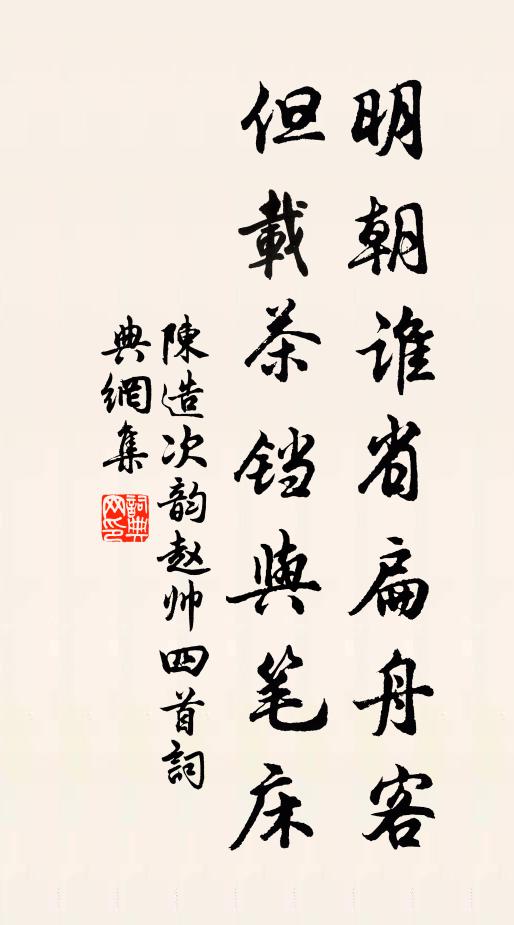 明朝谁省扁舟客
但載茶铛與笔床
陳造次韵赵帅四首詞
典網集
詞典网印